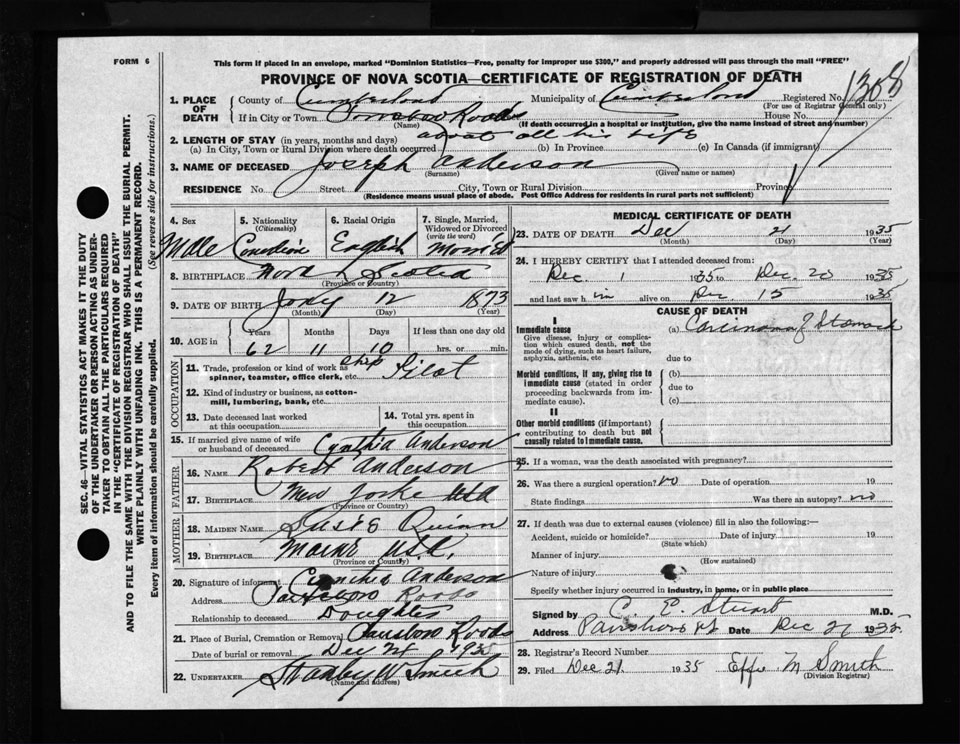 FORM 6
This form if placed in an envelope, marked "Dominion Statistics—Free, penalty for improper use $300," and properly addressed will pass through the mail "FREE"
PROVINCE OF NOVA SCOTIA—CERTIFICATE OF REGISTRATION OF DEATH
1. PLACE OF DEATH
County of Cumberland Municipality of Cumberland Registered No. 1308
(For use of Registrar General only)
If in City or Town Parrsboro Roads House No.
(Name) (If death occurred in a hospital or institution, give the name instead of street and number)
2. LENGTH OF STAY (in years, months and days) about all his life
(a) In City, Town or Rural Division where death occurred (b) In Province (c) In Canada (if immigrant)
3. NAME OF DECEASED Joseph Anderson
(Surname) (Given name or names)
RESIDENCE No. Street City, Town or Rural Division Province
(Residence means usual place of abode. Post Office Address for residents in rural parts not sufficient)
SEC. 46—VITAL STATISTICS ACT MAKES IT THE DUTY
OF THE UNDERTAKER OR PERSON ACTING AS UNDER-
TAKER TO OBTAIN ALL THE PARTICULARS REQUIRED
IN THE "CERTIFICATE OF REGISTRATION OF DEATH"
AND TO FILE THE SAME WITH THE DIVISION REGISTRAR WHO SHALL ISSUE THE BURIAL PERMIT.
WRITE PLAINLY WITH UNFADING INK. THIS IS A PERMANENT RECORD.
Every item of information should be carefully supplied. (See reverse side for instructions.)
4. Sex
Male
5. Nationality
(Citizenship)
Canadian
6. Racial Origin
English
7. Single, Married,
Widowed or Divorced
(write the word)
8. BIRTHPLACE Nova Scotia
(Province or Country)
9. DATE OF BIRTH 12 1873
(Month) (Day) (Year)
10. AGE in
Years Months Days If less than one day old
62 11 10 hrs. or min.
OCCUPATION
11. Trade, profession or kind of work as Ship Pilot
spinner, teamster, office clerk, etc.
12. Kind of industry or business, as cotton-
mill, lumbering, bank, etc.
13. Date deceased last worked
at this occupation
14. Total yrs. spent in
this occupation
15. If married give name of wife
or husband of deceased Cynthia Anderson
FATHER
16. NAME Robert Anderson
17. BIRTHPLACE New Yorke USA
(Province or Country)
MOTHER
18. MAIDEN NAME Quinn
19. BIRTHPLACE Maine U.S.A.
(Province or Country)
20. Signature of informant Cynthia Anderson
Address Parrsboro Roads
Relationship to deceased Daughter
21. Place of Burial, Cremation or Removal Parrsboro Roads
Date of burial or removal Dec 24 1935
22. UNDERTAKER Stanley W Smith
(Name and address)
MEDICAL CERTIFICATE OF DEATH
23. DATE OF DEATH Dec 21 1935
(Month) (Day) (Year)
24. I HEREBY CERTIFY that I attended deceased from:
Dec. 1 1935 to Dec. 20 1935
and last saw him alive on Dec. 15 1935
CAUSE OF DEATH
I
Immediate cause
Give disease, injury or complica-
tion which caused death, not the
mode of dying, such as heart failure,
asphyxia, asthenia, etc
(a) Carcinoma of Stomach
due to
Morbid conditions, if any, giving rise to
immediate cause (stated in order
proceeding backwards from im-
mediate cause).
(b)
due to
(c)
II
Other morbid conditions (if important)
contributing to death but not
causally related to immediate cause.
25. If a woman, was the death associated with pregnancy?
26. Was there a surgical operation? no Date of operation 19
State findings Was there an autopsy? no
27. If death was due to external causes (violence) fill in also the following:—
Accident, suicide or homicide? Date of injury 19
(State which)
Manner of injury
(How sustained)
Nature of injury
Specify whether injury occurred in industry, in home, or in public place
Signed by C. E. Stuart M.D.
Address Parrsboro NS Date Dec 21 1935
28. Registrar's Record Number
29. Filed Dec 21 1935 Effie M Smith
(Division Registrar)